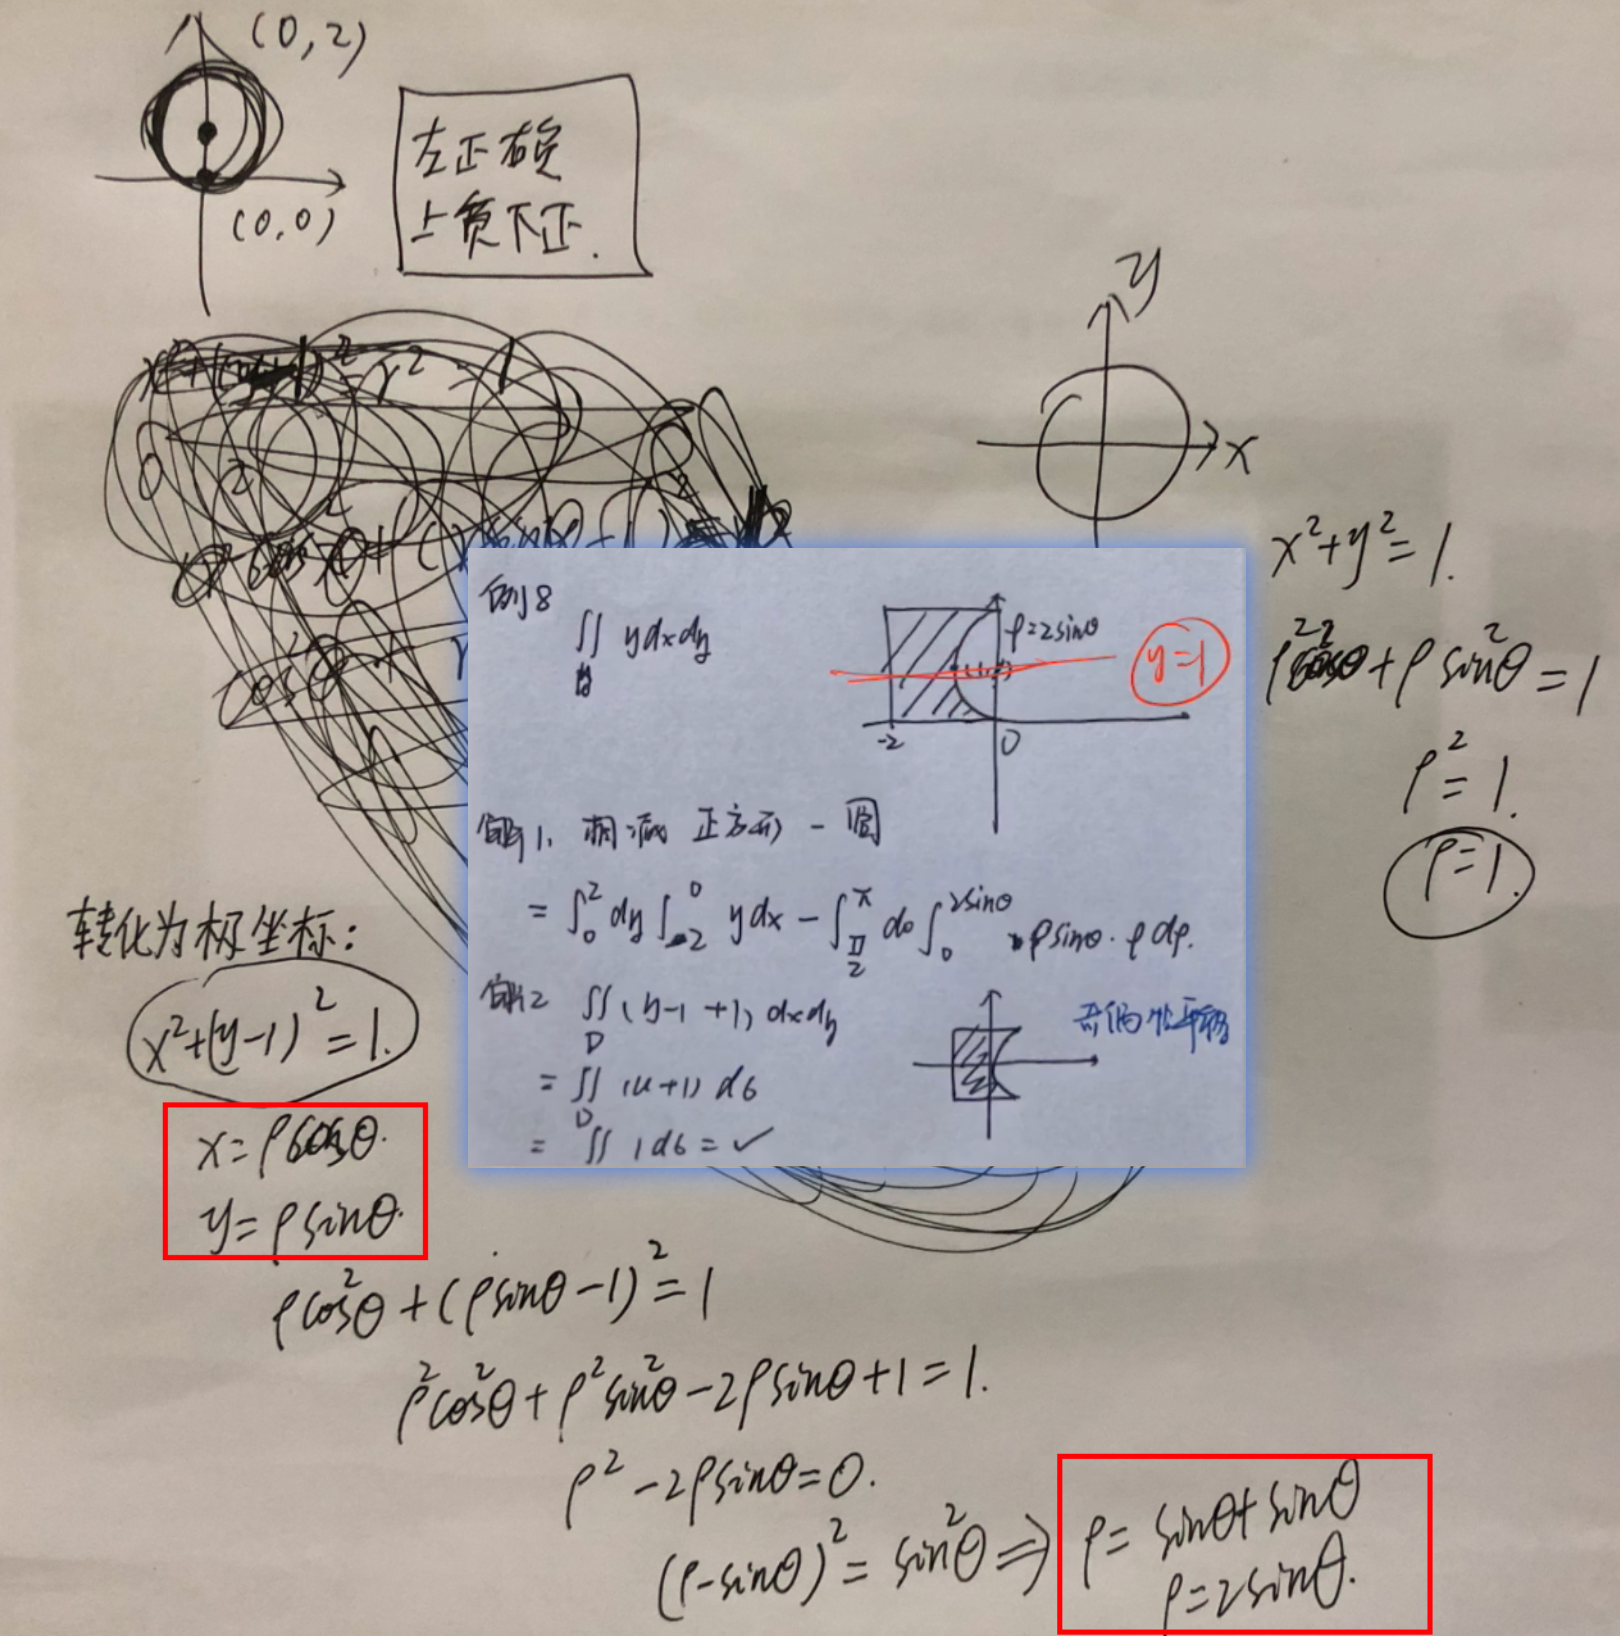 (0,2)
(0,0)
左正右负
上负下正.
y
x
x²+y²=1.
ρ²cos²θ+ρ²sin²θ=1
ρ²=1.
ρ=1.
例8
∬ y dx dy
D
ρ=2sinθ
y=1
-2
0
解1. 相减 正方形 - 圆
= ∫₀² dy ∫₋₂⁰ y dx - ∫_{π/2}^{π} dθ ∫₀^{2sinθ} ρsinθ·ρ dρ.
解2 ∬ (y-1+1) dx dy
D
= ∬ (u+1) dσ
D
= ∬ 1 dσ = ✓
奇偶性平移
转化为极坐标:
x²+(y-1)²=1.
x=ρcosθ.
y=ρsinθ.
ρcos²θ+(ρsinθ-1)²=1
ρ²cos²θ+ρ²sin²θ-2ρsinθ+1=1.
ρ²-2ρsinθ=0.
(ρ-sinθ)²=sin²θ⇒ρ=sinθ+sinθ
ρ=2sinθ.